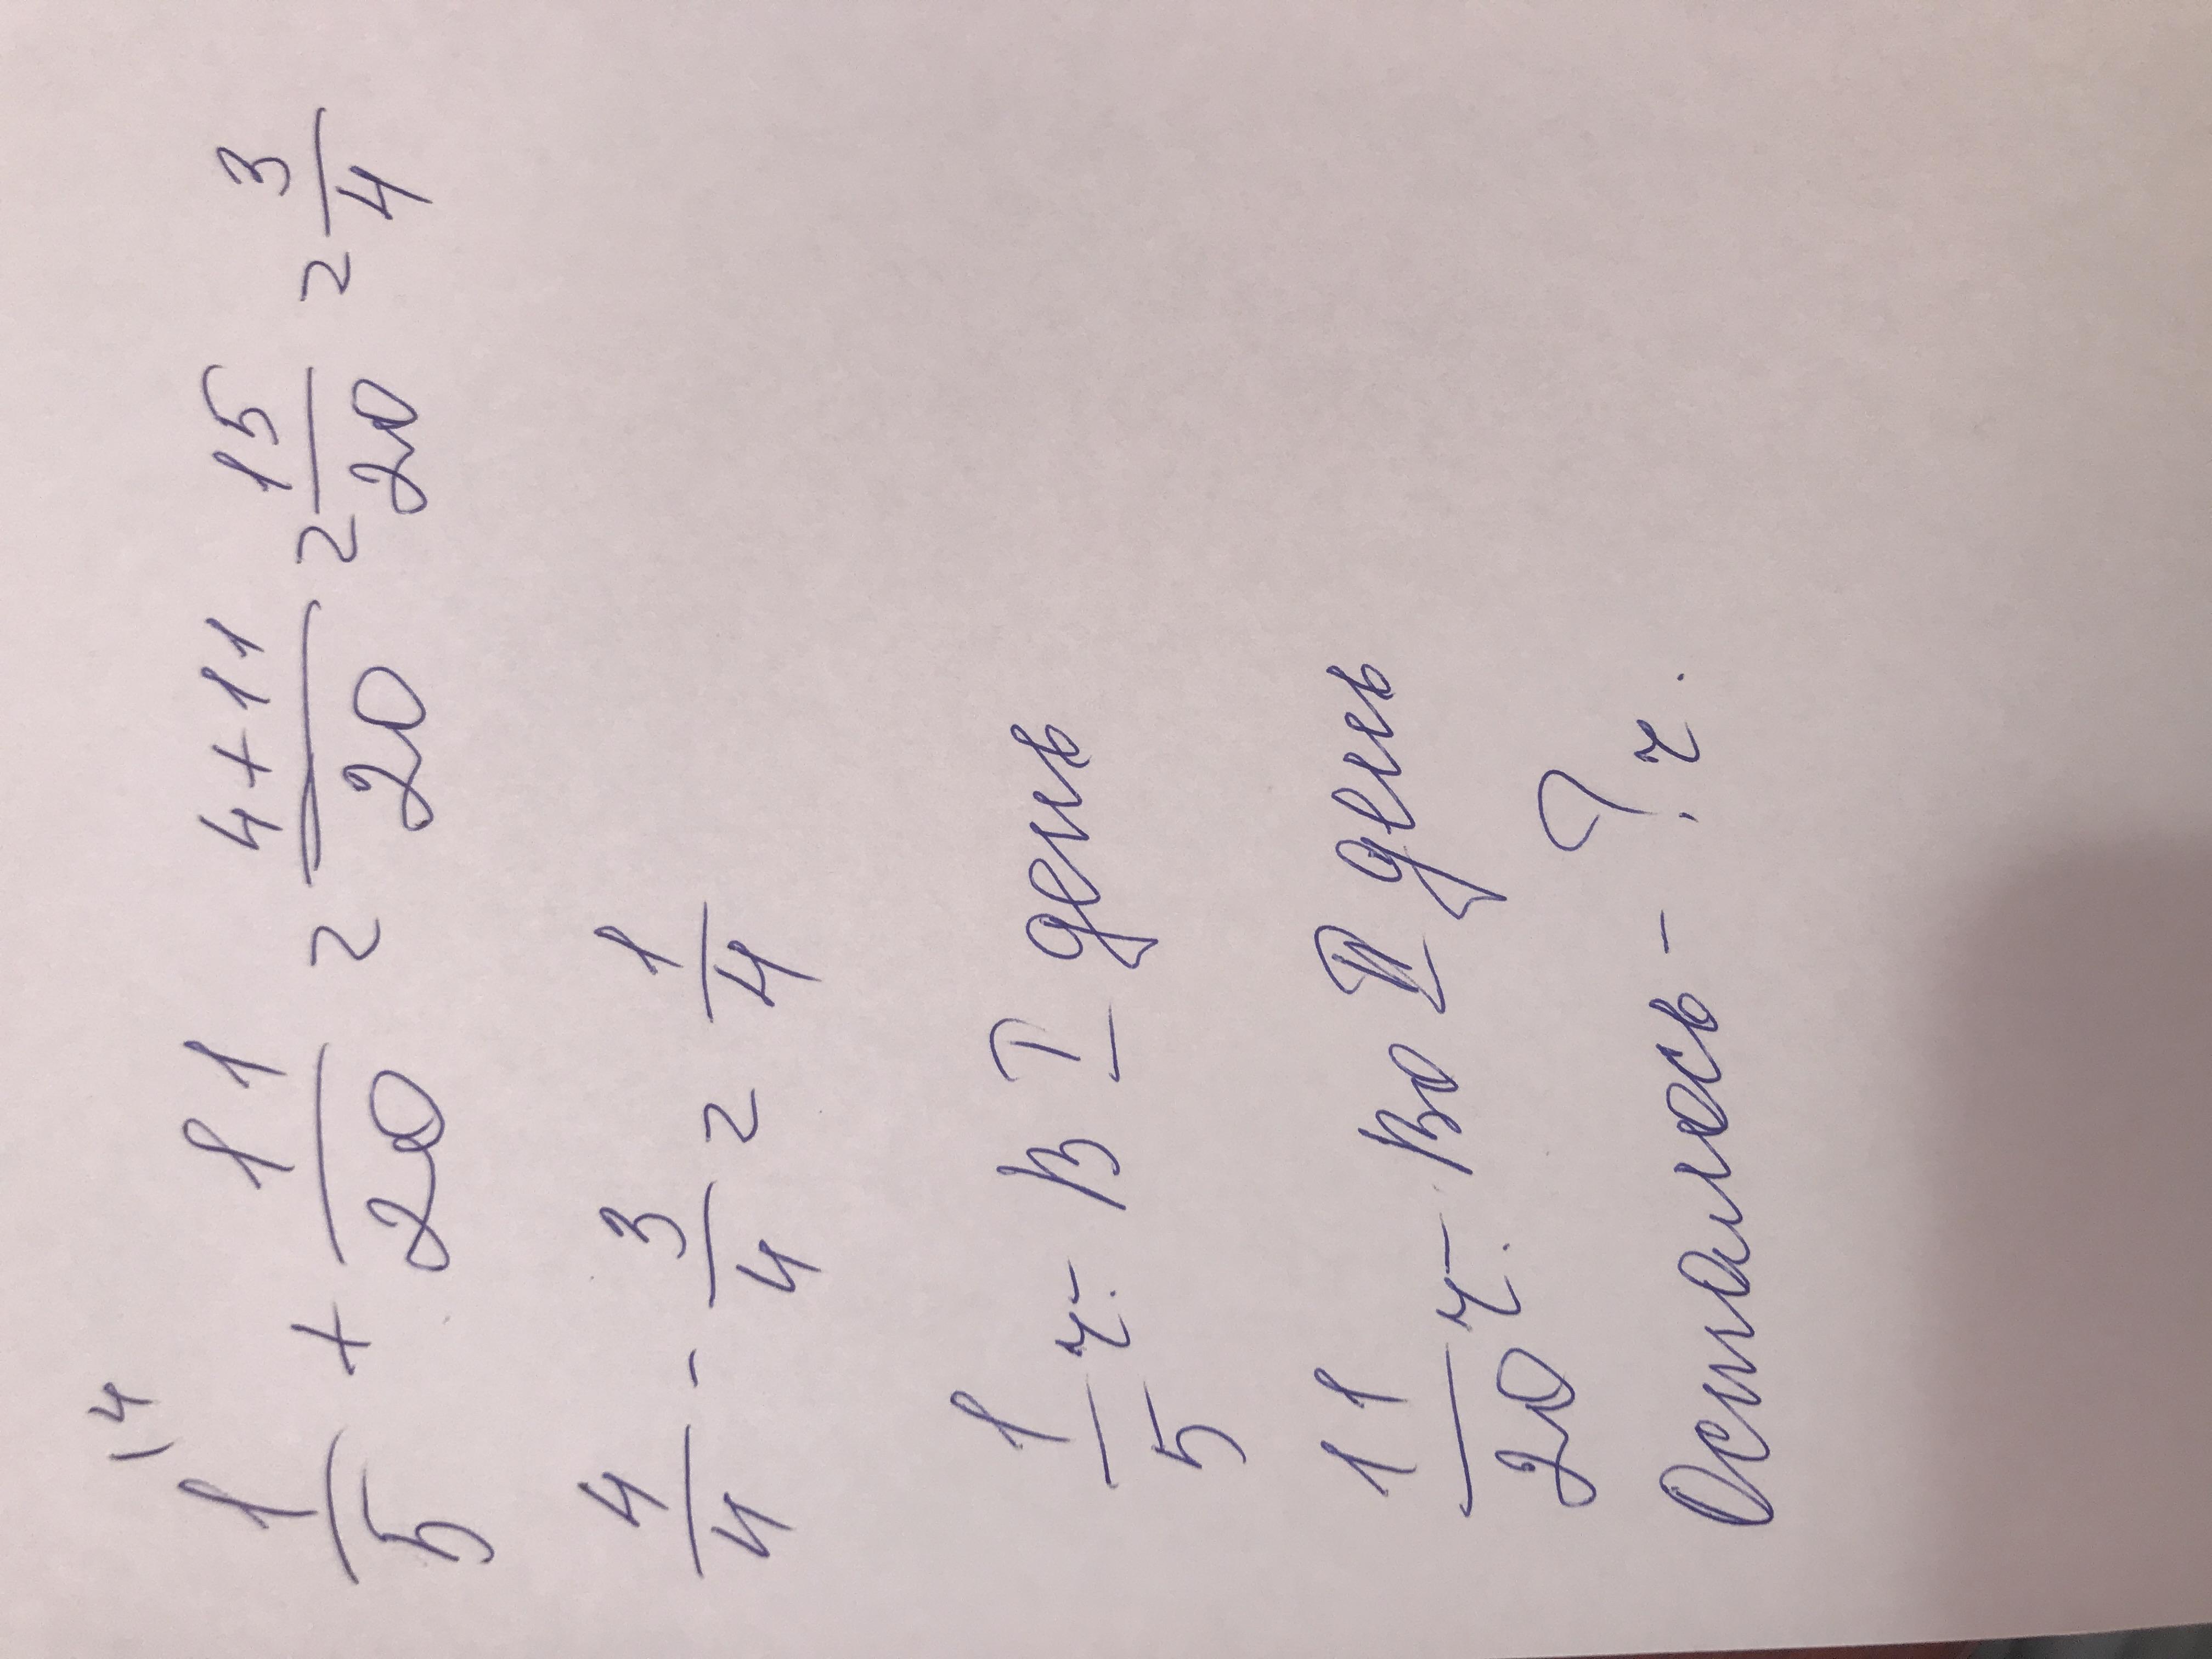 1/5 |4 + 11/20 = 4+11/20 = 15/20 = 3/4
4/4 - 3/4 = 1/4
1/5 ч. - в I день
11/20 ч. - во II день
Осталось - ? ч.